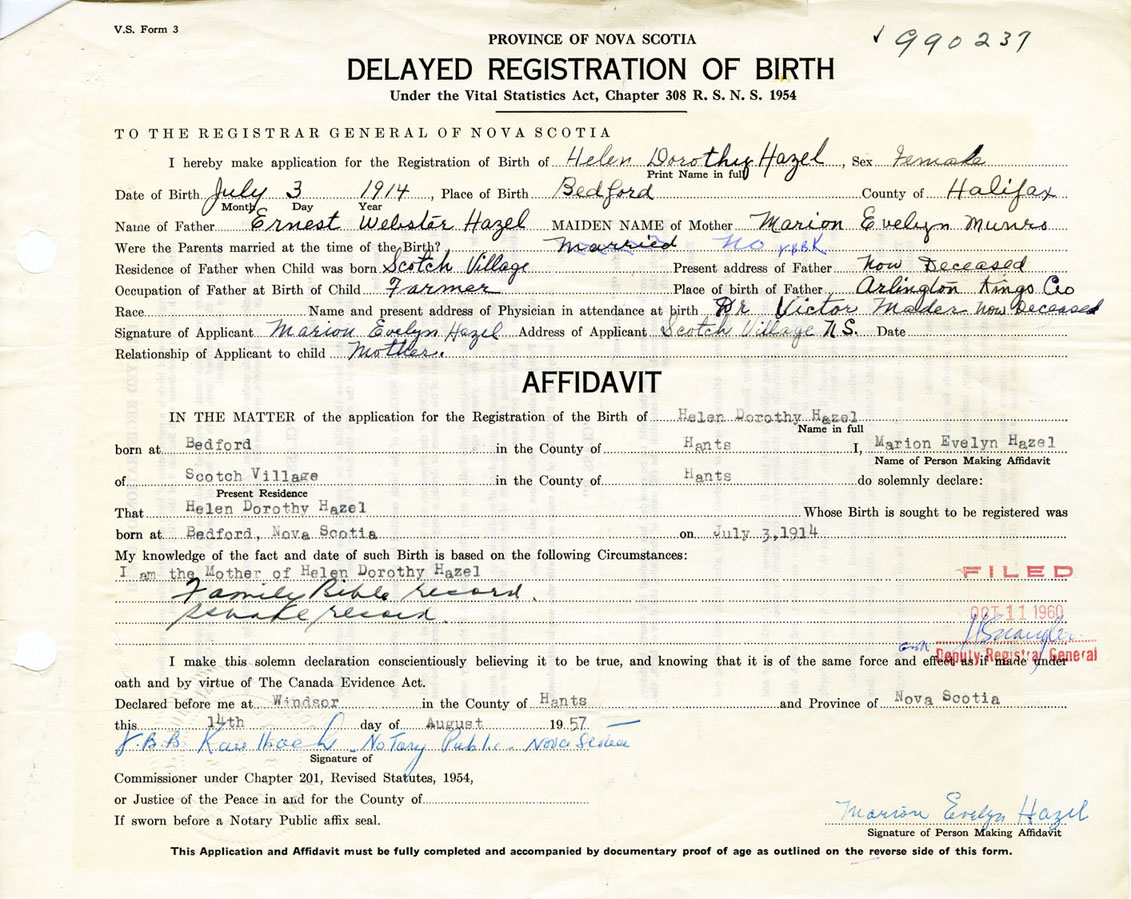 V.S. Form 3
990237
PROVINCE OF NOVA SCOTIA
DELAYED REGISTRATION OF BIRTH
Under the Vital Statistics Act, Chapter 308 R. S. N. S. 1954
TO THE REGISTRAR GENERAL OF NOVA SCOTIA
I hereby make application for the Registration of Birth of Helen Dorothy Hazel, Sex Female
Print Name in full
Date of Birth July 3 1914, Place of Birth Bedford County of Halifax
Month Day Year
Name of Father Ernest Webster Hazel MAIDEN NAME of Mother Marion Evelyn Munro
Were the Parents married at the time of the Birth? Married No
Residence of Father when Child was born Scotch Village Present address of Father Now Deceased
Occupation of Father at Birth of Child Farmer Place of birth of Father Arlington Kings Co
Race Name and present address of Physician in attendance at birth Dr Victor Mader Now Deceased
Signature of Applicant Marion Evelyn Hazel Address of Applicant Scotch Village N.S. Date
Relationship of Applicant to child Mother.
AFFIDAVIT
IN THE MATTER of the application for the Registration of the Birth of Helen Dorothy Hazel
Name in full
born at Bedford in the County of Hants I, Marion Evelyn Hazel
Name of Person Making Affidavit
of Scotch Village in the County of Hants do solemnly declare:
Present Residence
That Helen Dorothy Hazel Whose Birth is sought to be registered was
born at Bedford, Nova Scotia on July 3,1914
My knowledge of the fact and date of such Birth is based on the following Circumstances:
I am the Mother of Helen Dorothy Hazel
Family Bible record.
record.
FILED
OCT 11 1960
Deputy Registrar General
I make this solemn declaration conscientiously believing it to be true, and knowing that it is of the same force and effect as if made under
oath and by virtue of The Canada Evidence Act.
Declared before me at Windsor in the County of Hants and Province of Nova Scotia
this 14th day of August 1957
Notary Public - Nova Scotia
Signature of
Commissioner under Chapter 201, Revised Statutes, 1954,
or Justice of the Peace in and for the County of
If sworn before a Notary Public affix seal.
Marion Evelyn Hazel
Signature of Person Making Affidavit
This Application and Affidavit must be fully completed and accompanied by documentary proof of age as outlined on the reverse side of this form.